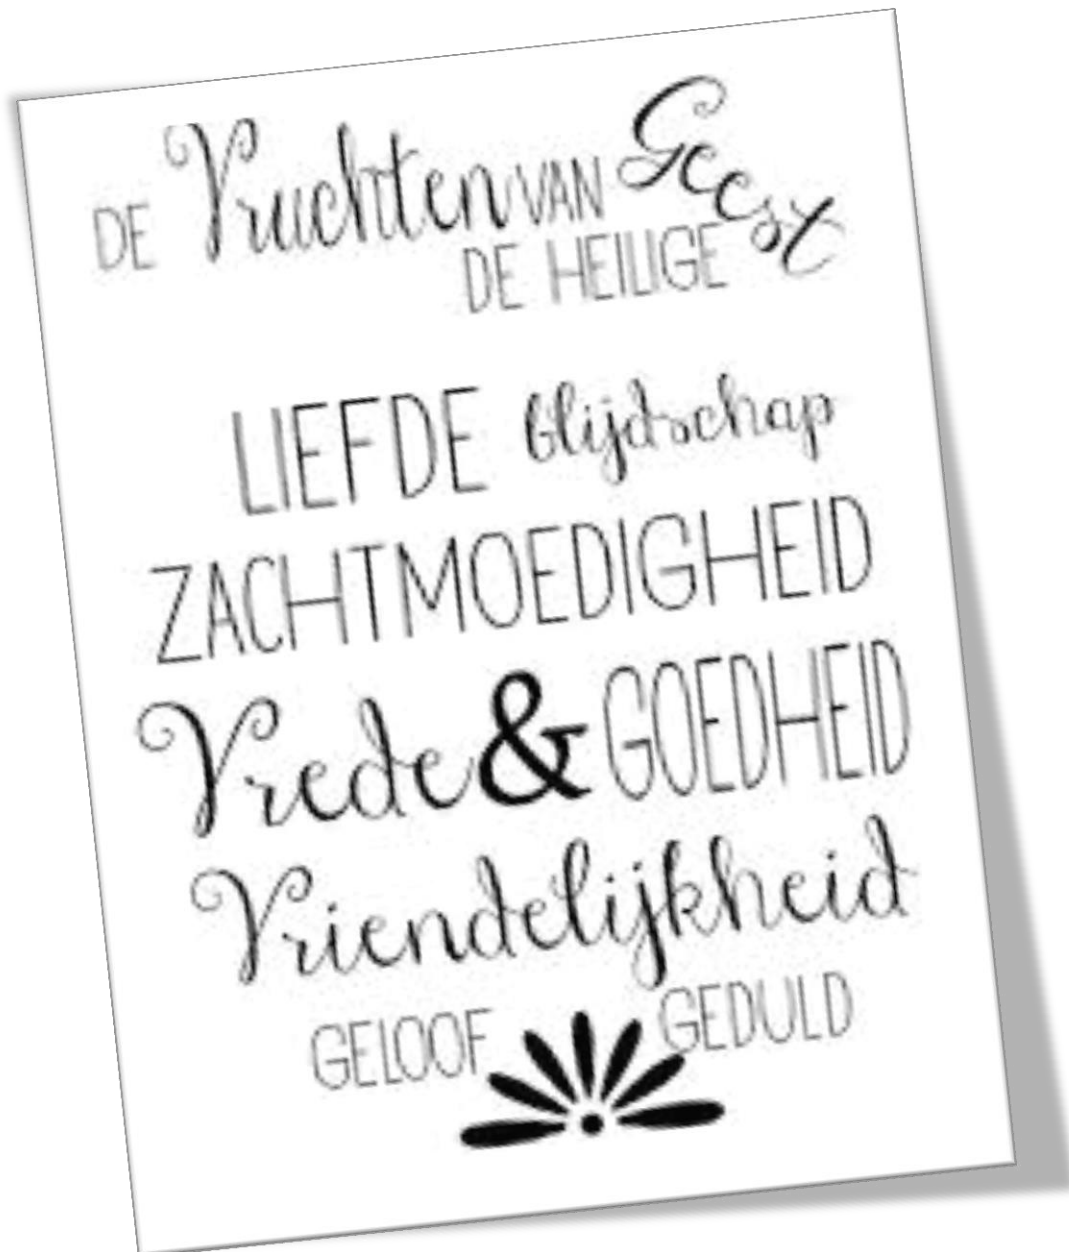 DE Vruchten VAN Geest
DE HEILIGE
LIEFDE blijdschap
ZACHTMOEDIGHEID
Vrede & GOEDHEID
Vriendelijkheid
GELOOF GEDULD